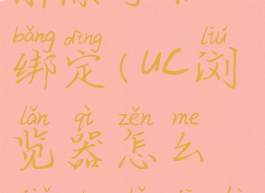 bǎng dìng liú
绑定(UC浏
lǎn qì zěn me
览器怎么